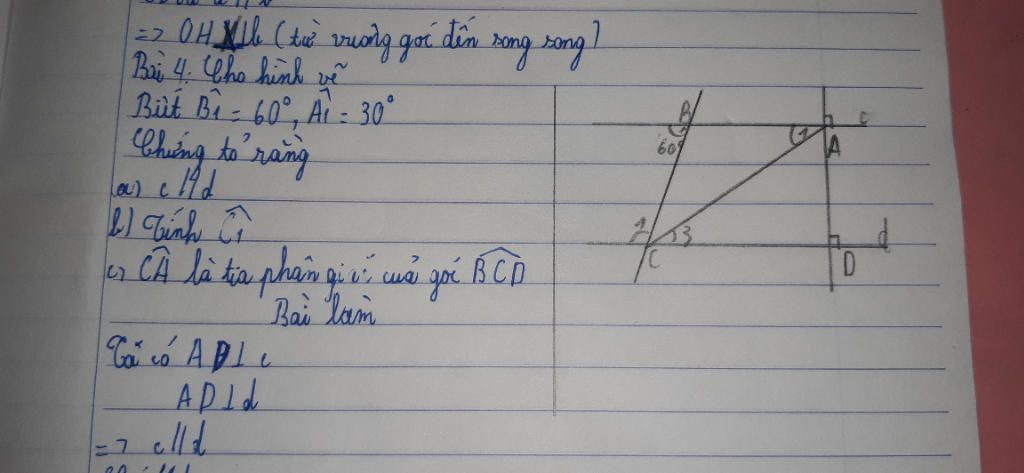 => OH ⊥ b (từ vuông góc đến song song)
Bài 4: Cho hình vẽ
Biết B̂1 = 60°, Â1 = 30°
Chứng tỏ rằng
a) c // d
b) Tính Ĉ1
c) CA là tia phân giác của góc BCD
Bài làm
Ta có AD ⊥ c
AD ⊥ d
=> c // d
B
c
60°
1
A
1
3
d
C
D